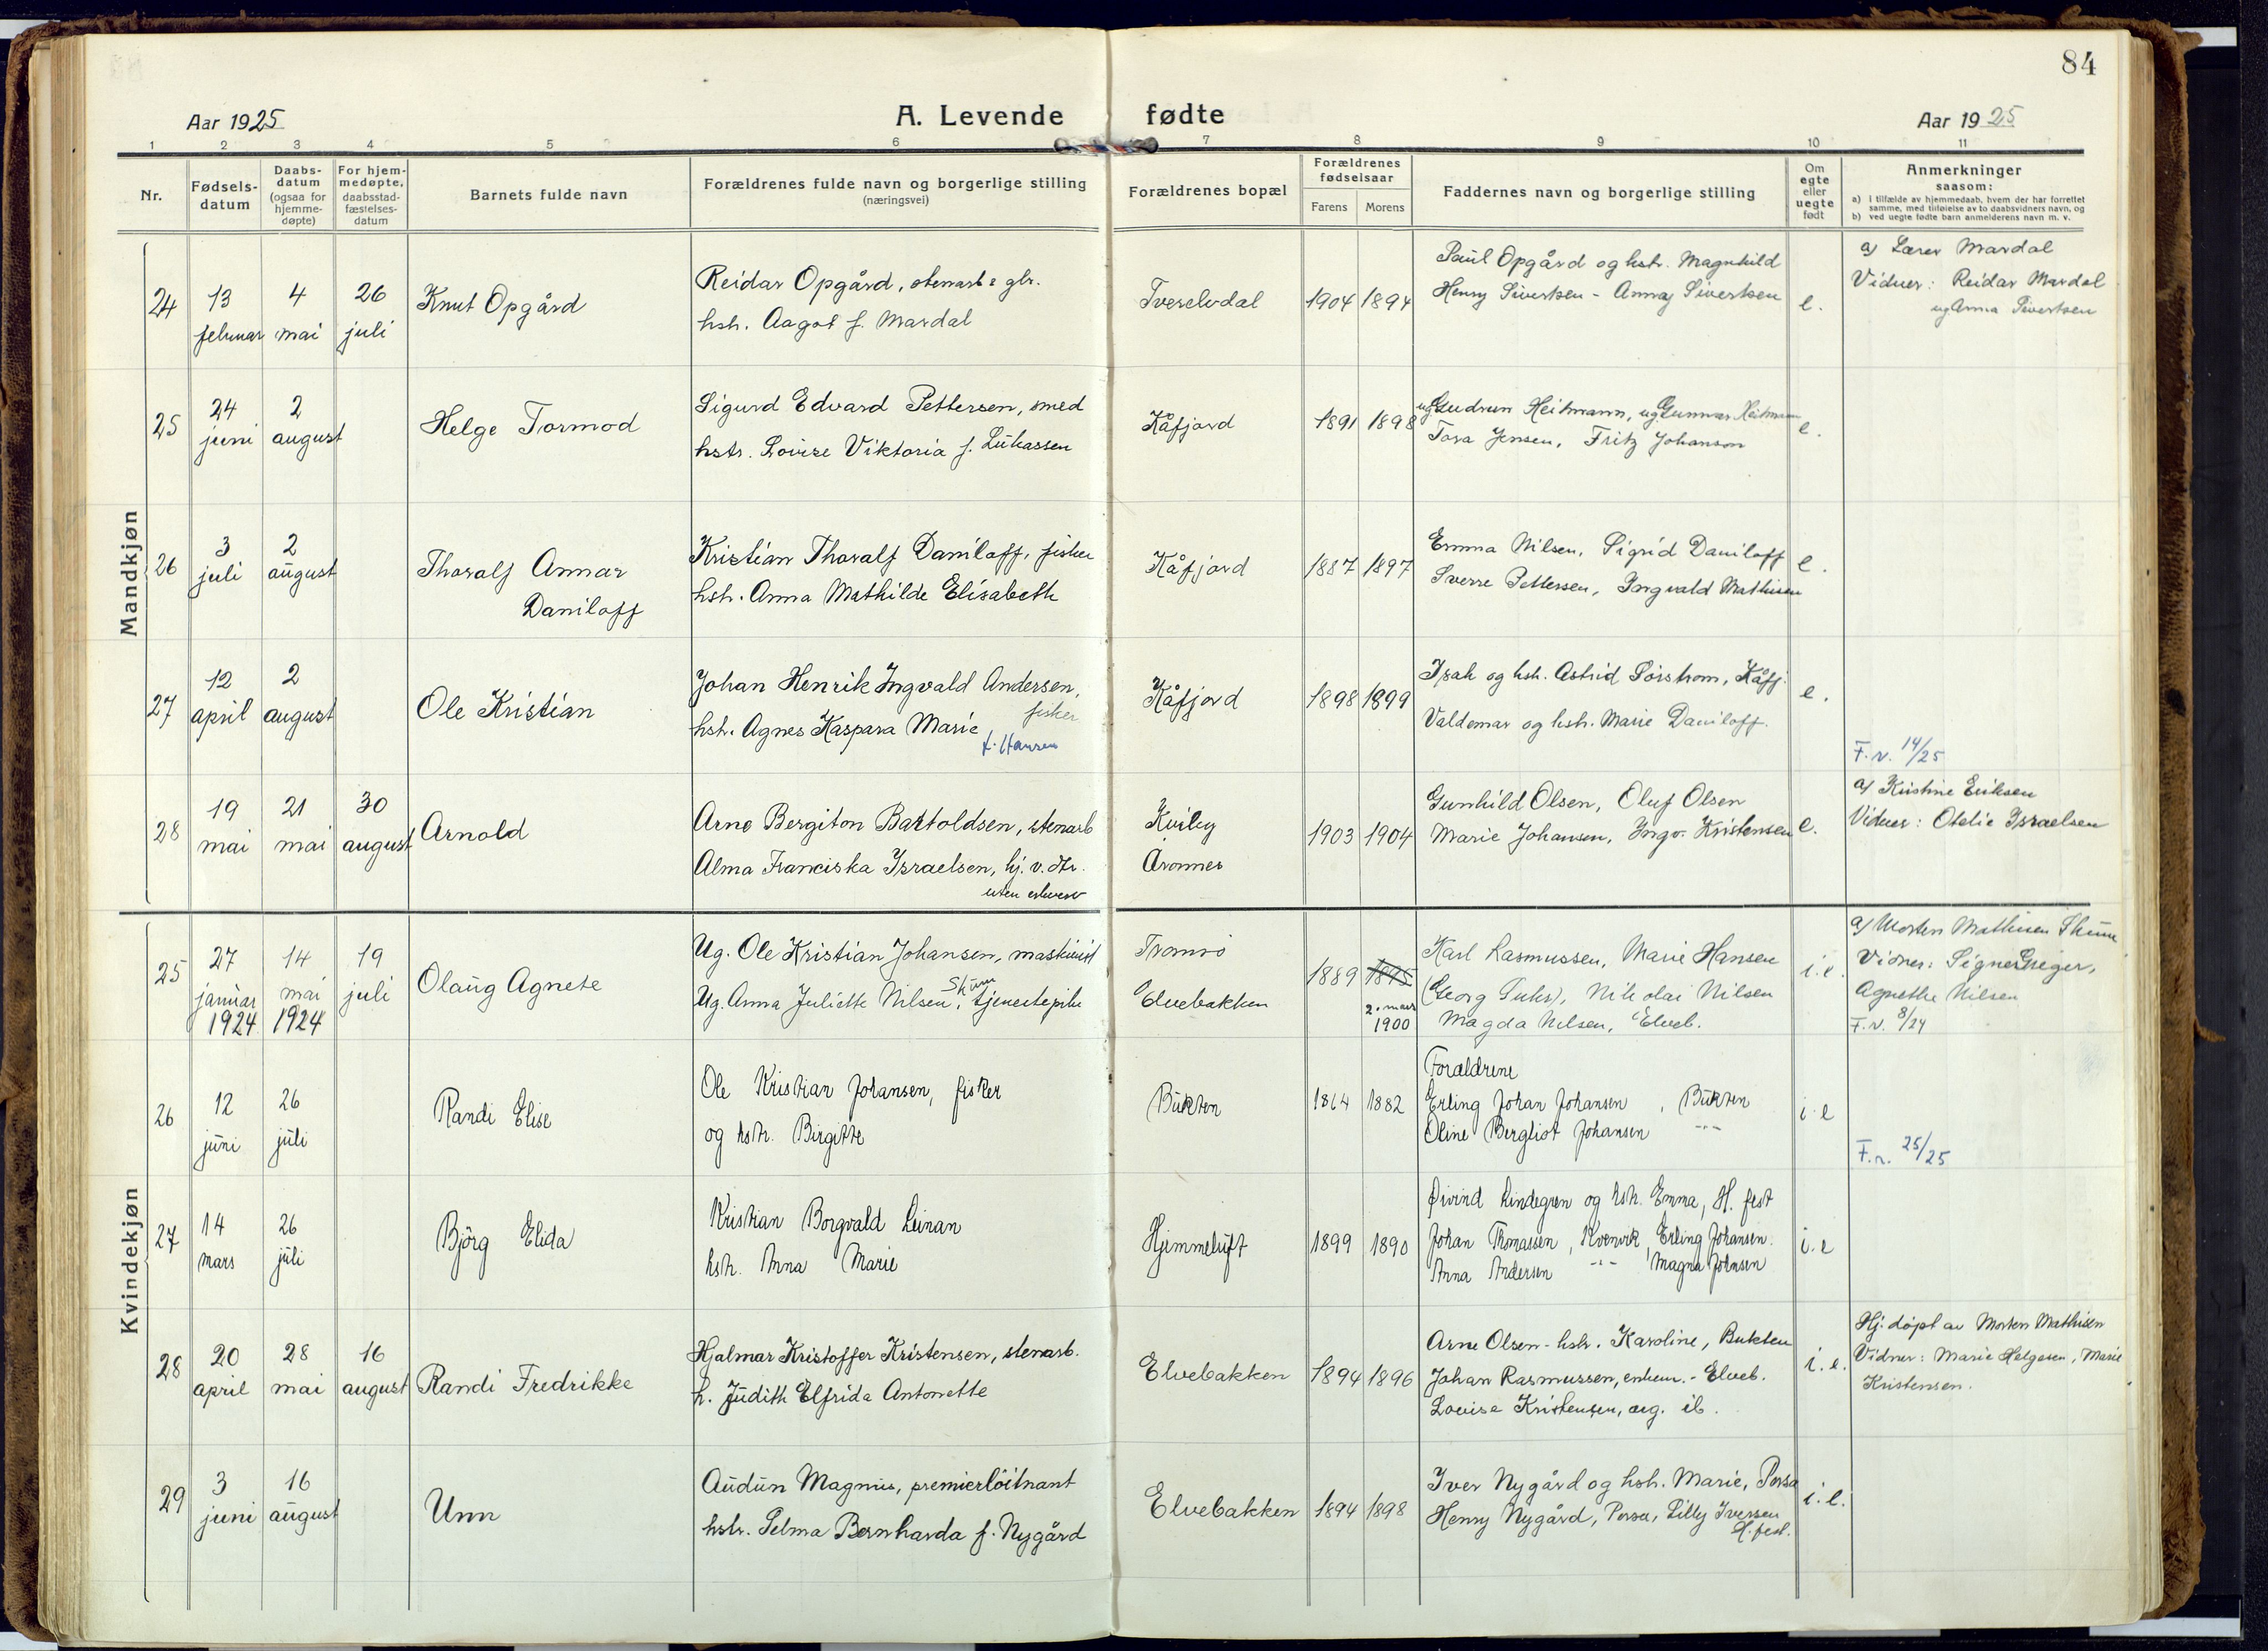 84
Aar 1925
A. Levende fødte
Aar 1925
1 2 3 4 5 6 7 8 9 10 11
Nr.
Fødsels-
datum
Daabs-
datum
(ogsaa for
hjemme-
døpte)
For hjem-
medøpte,
daabsstad-
fæstelses-
datum
Barnets fulde navn
Forældrenes fulde navn og borgerlige stilling
(næringsvei)
Forældrenes bopæl
Forældrenes
fødselsaar
Farens Morens
Faddernes navn og borgerlige stilling
Om
egte
eller
uegte
født
Anmerkninger
saasom:
a) I tilfælde av hjemmedaab, hvem der har forrettet
samme, med tilføielse av to daabsvidners navn, og
b) ved uegte fødte barn anmelderens navn m. v.
Mandkjøn
24
13
februar
4
mai
26
juli
Knut Opgård
Reidar Opgård, stenarb. glr.
hstr. Aagot f. Mardal
Tverelvdal
1904 1894
Paul Opgård og hstr. Magnhild
Henry Sivertsen - Anna Sivertsen
e.
a) Lærer Mardal
Vidner: Reidar Mardal
ug Anna Sivertsen
25
24
juni
2
august
Helge Tormod
Sigurd Edvard Pettersen, smed
hstr. Lovise Viktoria f. Lukassen
Kåfjord
1891 1898
ug Gudrun Heitmann, ug Gunnar Heitmann
Tora Jensen, Fritz Johanson
e.
26
3
juli
2
august
Thoralf Annar
Daniloff
Kristian Thoralf Daniloff, fisker
hstr. Anna Mathilde Elisabeth
Kåfjord
1887 1897
Emma Nilsen, Sigrid Daniloff
Sverre Pettersen, Ingvald Mathisen
e.
27
12
april
2
august
Ole Kristian
Johan Henrik Ingvald Andersen,
fisker
hstr. Agnes Kaspara Marie
f. Hansen
Kåfjord
1898 1899
Isak og hstr. Astrid Sorstrom, Kåfj.
Valdemar og hstr. Marie Daniloff.
e.
F.r. 14/25
28
19
mai
21
mai
30
august
Arnold
Arne Bergiton Bartoldsen, stenarb
Alma Franciska Israelsen, hj. v. str.
uten erhverv
Kviby
Aronnes
1903 1904
Gunhild Olsen, Oluf Olsen
Marie Johansen, Ingv. Kristensen
e.
a) Kristine Eriksen
Vidner: Otelie Israelsen
Kvindekjøn
25
27
januar
1924
14
mai
1924
19
juli
Olaug Agnete
Ug. Ole Kristian Johansen, maskinist
Skum
Ug. Anna Juliette Nilsen, tjenestepike
Tromsø
Elvebakken
1889 1895
2. mars
1900
Karl Rasmussen, Marie Hansen
(Georg Suhr), Nikolai Nilsen
Magda Nilsen, Elveb.
i.e.
a) Morten Mathisen Skum
Vidner: Signe Greger,
Agnethe Nilsen
F.r. 8/24
26
12
juni
26
juli
Randi Elise
Ole Kristian Johansen, fisker
og hstr. Birgitte
Bukten
1864 1882
Forældrene
Erling Johan Johansen, Bukten
Oline Bergliot Johansen -"-
i.e
F.r. 25/25
27
14
mars
26
juli
Björg Elida
Kristian Borgvald Leinan
hstr. Anna Marie
Hjemmeluft
1899 1890
Øivind Lindegren og hstr. Emma, H. fest
Johan Thomassen, Kvenvik, Erling Johansen.
Anna Andersen -"- Magna Johnsen
i.e
28
20
april
28
mai
16
august
Randi Fredrikke
Hjalmar Kristoffer Kristensen, stenarb.
h. Judith Elfrida Antonette
Elvebakken
1894 1896
Arne Olsen - hstr. Karoline, Bukten
Johan Rasmussen, enkem. - Elveb.
Lovise Kristensen, ib.
i.e.
Hj. døpt av Morten Mathisen
Vidner: Marie Helgesen, Marie
Kristensen.
29
3
juni
16
august
Unn
Audun Magnus, premierløitnant
hstr. Selma Bernharda f. Nygård
Elvebakken
1894 1898
Iver Nygård og hstr. Marie, Porsa
Henry Nygård, Porsa, Lilly Iversen
H. fest.
i.e.